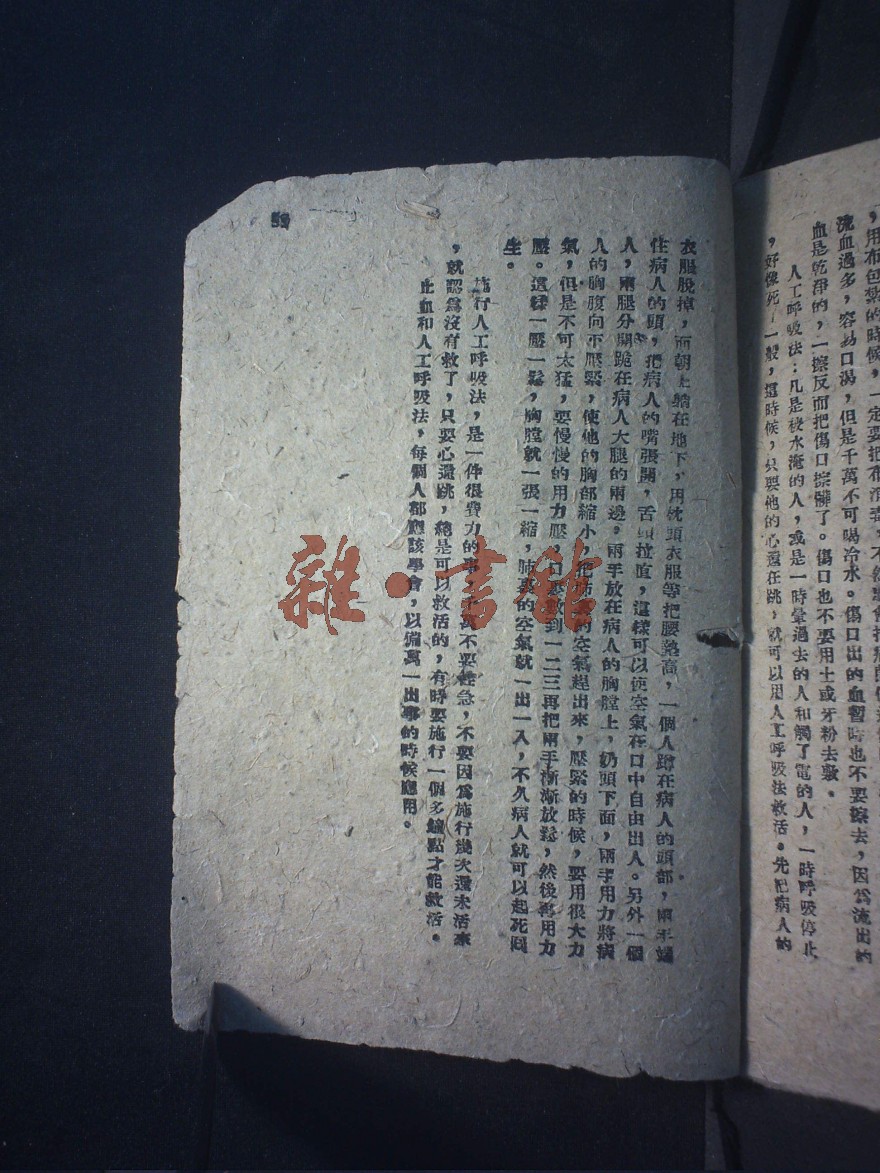 ，用布包紮的時候，一定要把布消毒，不然就會
流血過多，容易口渴，但是千萬不可喝冷水。傷口出的血暫時也不要擦去，因爲流出的
血是乾淨的，一擦反而把傷口擦髒了。傷口也不要用土或牙粉去敷。
人工呼吸法：凡是被水淹的人，或是一時暈過去的人和觸了電的人，一時呼吸停止
，好像死了一般，這時候，只要他的心還在跳，就可以用人工呼吸法救活。先把病人的
衣服脫掉，面朝上躺在地下，用枕頭衣服等把腰墊高，一個人蹲在病人的頭部，兩手
住病人的頭，把病人的嘴張開，舌頭拉直，這樣可以使空氣在口中自由出入。另外一個
人，兩腿分開跪在病人大腿的兩邊。兩手放在病人的胸膛上，奶頭下面，兩手用力將病
人的胸腹向下壓緊，使他的胸部縮小，把肺裏的空氣趕出來，壓緊的時候，要用很大力
氣，但是不可太猛，要慢慢的用力壓，口裏數到一二三再把兩手漸漸放鬆，然後再用力
壓。這樣一壓一鬆，胸膛就一張一縮，肺裏的空氣就一出一入，不久病人就可以起死回
生。
施行人工呼吸法，是一件很費力的事，千萬不要性急，不要因爲施行幾次還未活來
，就認爲沒有救了，只要心還跳，總是可以救活的，有時要施行一個多鐘點才能救活。
止血和人工呼吸法，每個人都應該學會，以備萬一出事的時候應用。
雜·書館